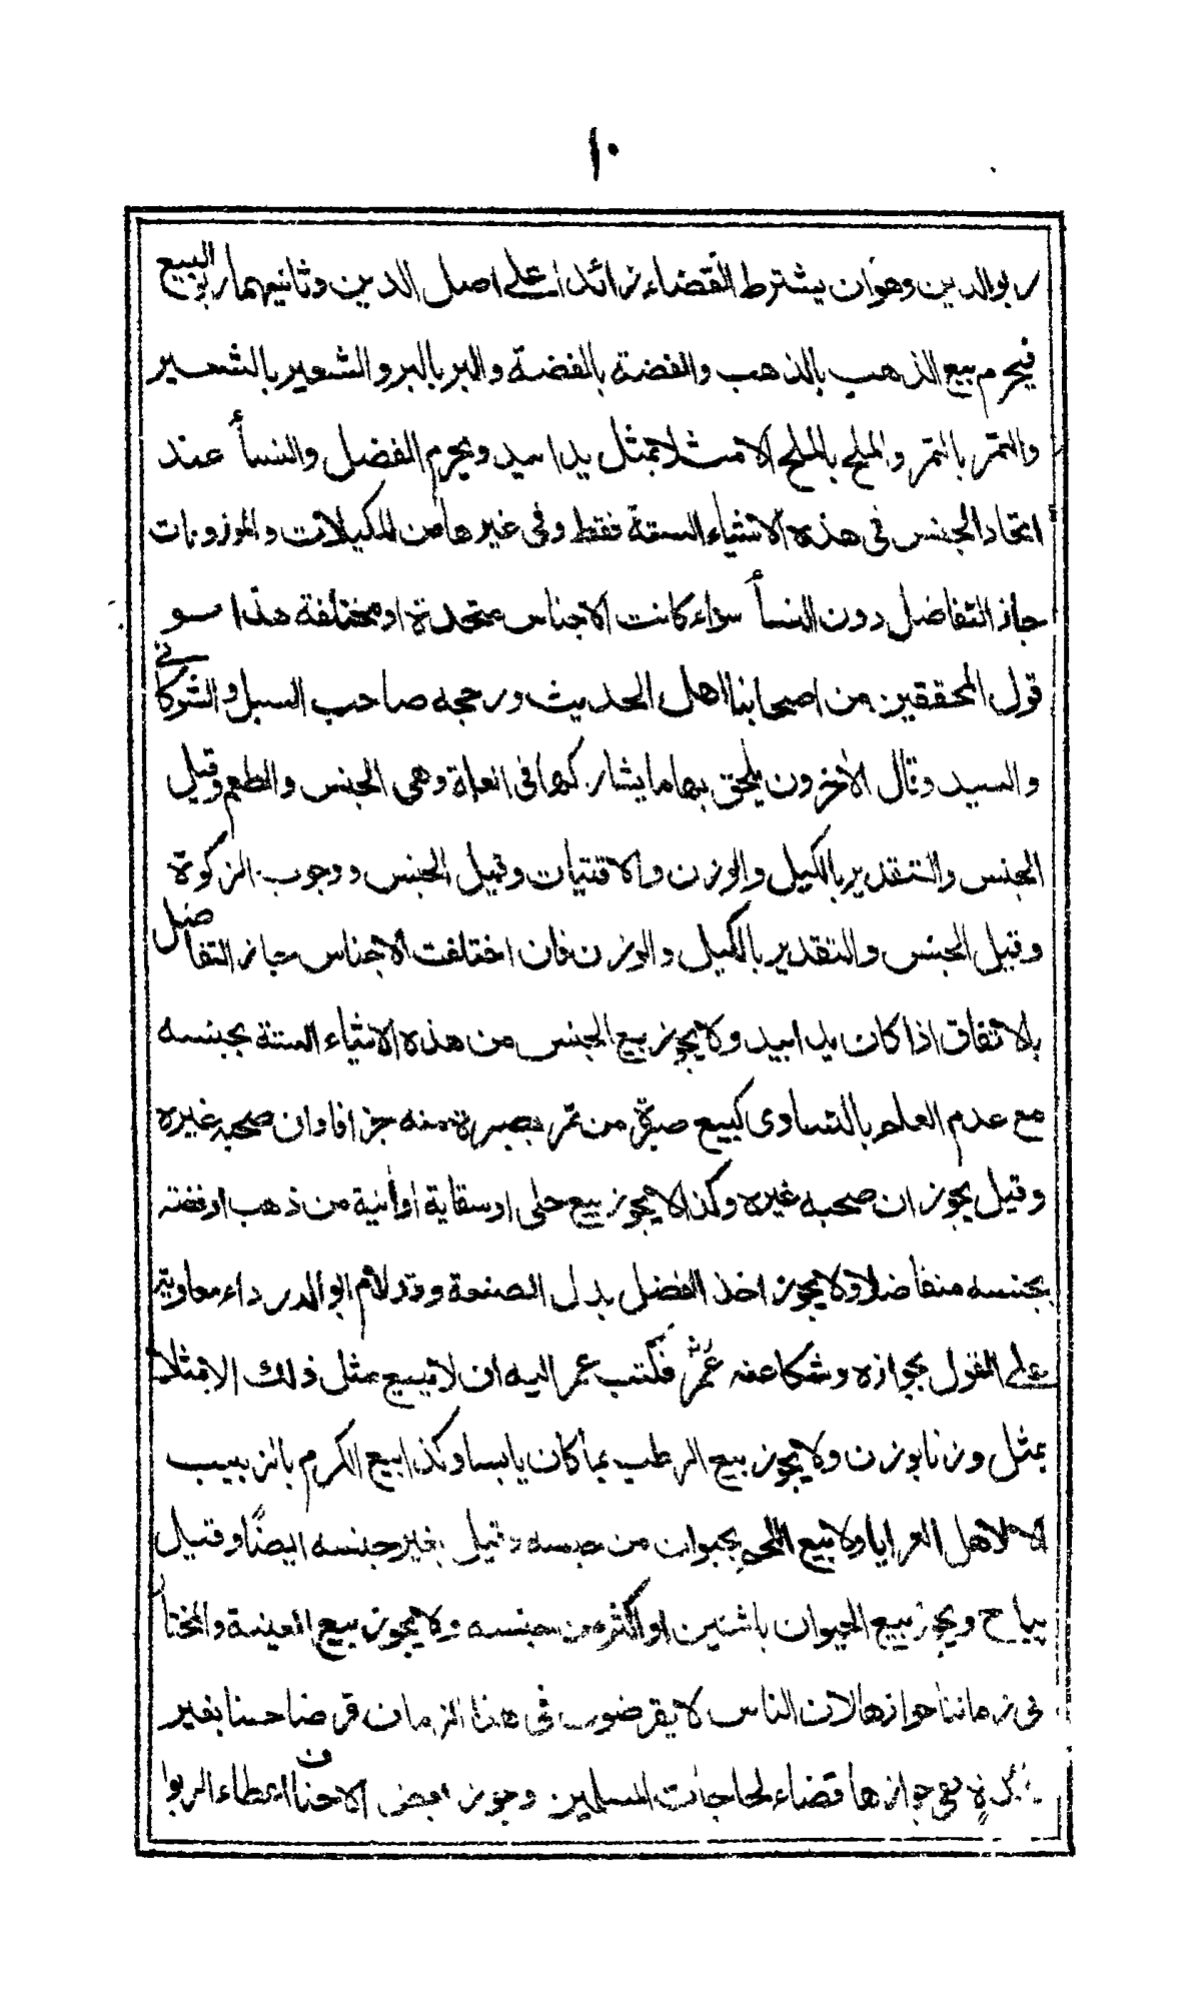 ١٠
ربو الدين وهو ان يشترط القضاء زائدا على اصل الدين وثانيهما ربو البيع
فيحرم بيع الذهب بالذهب والفضة بالفضة والبر بالبر والشعير بالشعير
والتمر بالتمر والملح بالملح الا مثلا بمثل يدا بيد ويحرم الفضل والنسأ عند
اتحاد الجنس فى هذه الاشياء الستة فقط وفى غيرها من المكيلات والموزونات
جاز التفاضل دون النسأ سواء كانت الاجناس متحدة او مختلفة هذا هو
قول المحققين من اصحابنا اهل الحديث ورجحه صاحب السبل والشوكانے
والسيد وقال الأخرون يلحق بها ما يشاركها فى العلة وهى الجنس والطعم وقيل
الجنس والتقدير بالكيل والوزن والاقتيات وقيل الجنس ووجوب الزكوة
وقيل الجنس والتقدير بالكيل والوزن فان اختلفت الاجناس جاز التفاضل
بلا تفاق اذا كان يدا بيد ولا يجوز بيع الجنس من هذه الاشياء الستة بجنسه
مع عدم العلم بالتساوى كبيع صبرة من تمر بصبرة منه جزافا وان صحبه غيره
وقيل يجوز ان صحبه غيره وكذا لا يجوز بيع حلى او سقاية او أنية من ذهب او فضة
بجنسه متفاضلا ولا يجوز اخذ الفضل بدل الصنعة وقد لام ابو الدرداء معاوية
على القول بجوازه وشكا عنه عمرؓ فكتب عمر اليه ان لا تبيع مثل ذلك الا مثلا
بمثل وزنا بوزن ولا يجوز بيع الرطب بما كان يابسا وكذا بيع الكرم بالزبيب
الا لاهل العرايا ولا بيع اللحم بحيوان من جنسه وقيل بغير جنسه ايضًا وقيل
يباح ويجوز بيع الحيوان باثنين او اكثر من جنسه ولا يجوز بيع العينة والمختار
فى زماننا جوازها لان الناس لا يقرضون فى هذا الزمان قرضا حسنا بغير
ففى جوازها قضاء لحاجات المسلمين وجوز بعض الاحناف اعطاء الربوا